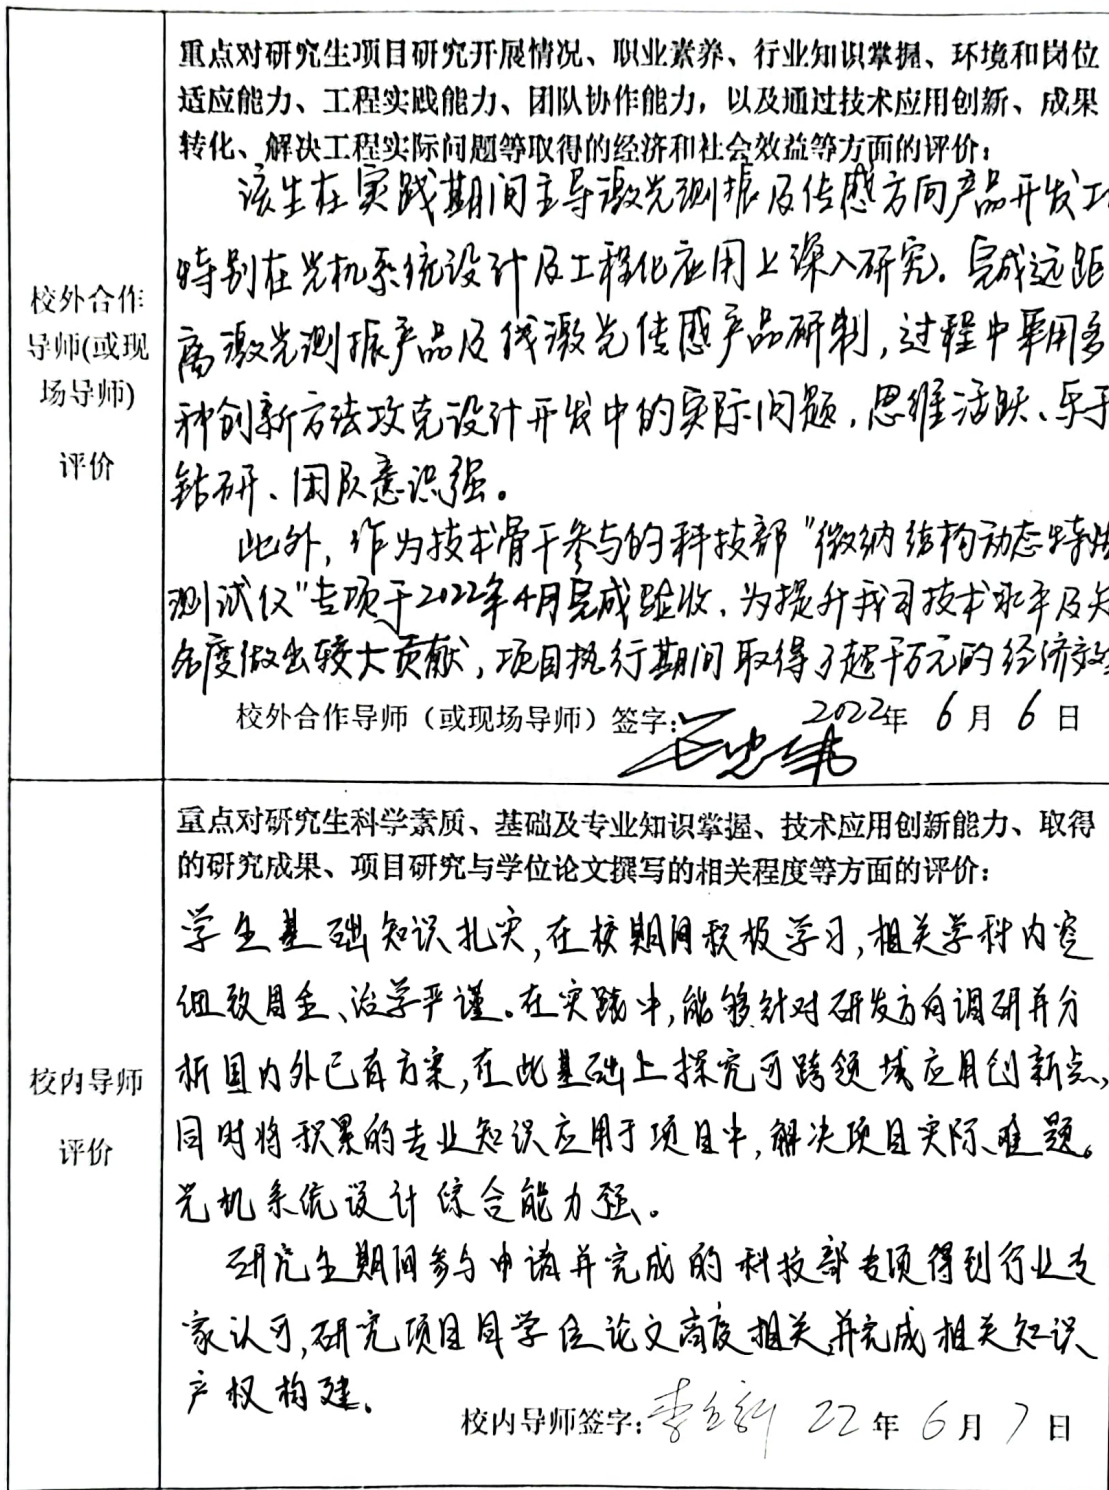 校外合作
导师(或现
场导师)
评价
重点对研究生项目研究开展情况、职业素养、行业知识掌握、环境和岗位
适应能力、工程实践能力、团队协作能力，以及通过技术应用创新、成果
转化、解决工程实际问题等取得的经济和社会效益等方面的评价：
该生在实践期间主导激光测振及传感方向产品开发工
特别在光机系统设计及工程化应用上深入研究。完成远距
离激光测振产品及线激光传感产品研制，过程中采用多
种创新方法攻克设计开发中的实际问题，思维活跃、乐于
钻研、团队意识强。
此外，作为技术骨干参与的科技部"微纳结构动态特性
测试仪"专项于2022年4月完成验收，为提升我司技术水平及知
名度做出较大贡献，项目执行期间取得了超千万元的经济效益
校外合作导师（或现场导师）签字： 2022年 6月 6日
校内导师
评价
重点对研究生科学素质、基础及专业知识掌握、技术应用创新能力、取得
的研究成果、项目研究与学位论文撰写的相关程度等方面的评价：
学生基础知识扎实，在校期间积极学习，相关学科内容
细致周全、治学严谨。在实践中，能够针对研发方向调研并分
析国内外已有方案，在此基础上探究可跨领域应用创新点，
同时将积累的专业知识应用于项目中，解决项目实际难题。
光机系统设计综合能力强。
研究生期间参与申请并完成的科技部专项得到行业专
家认可，研究项目同学位论文高度相关，并完成相关知识
产权构建。
校内导师签字：李立新 22年 6月 7日